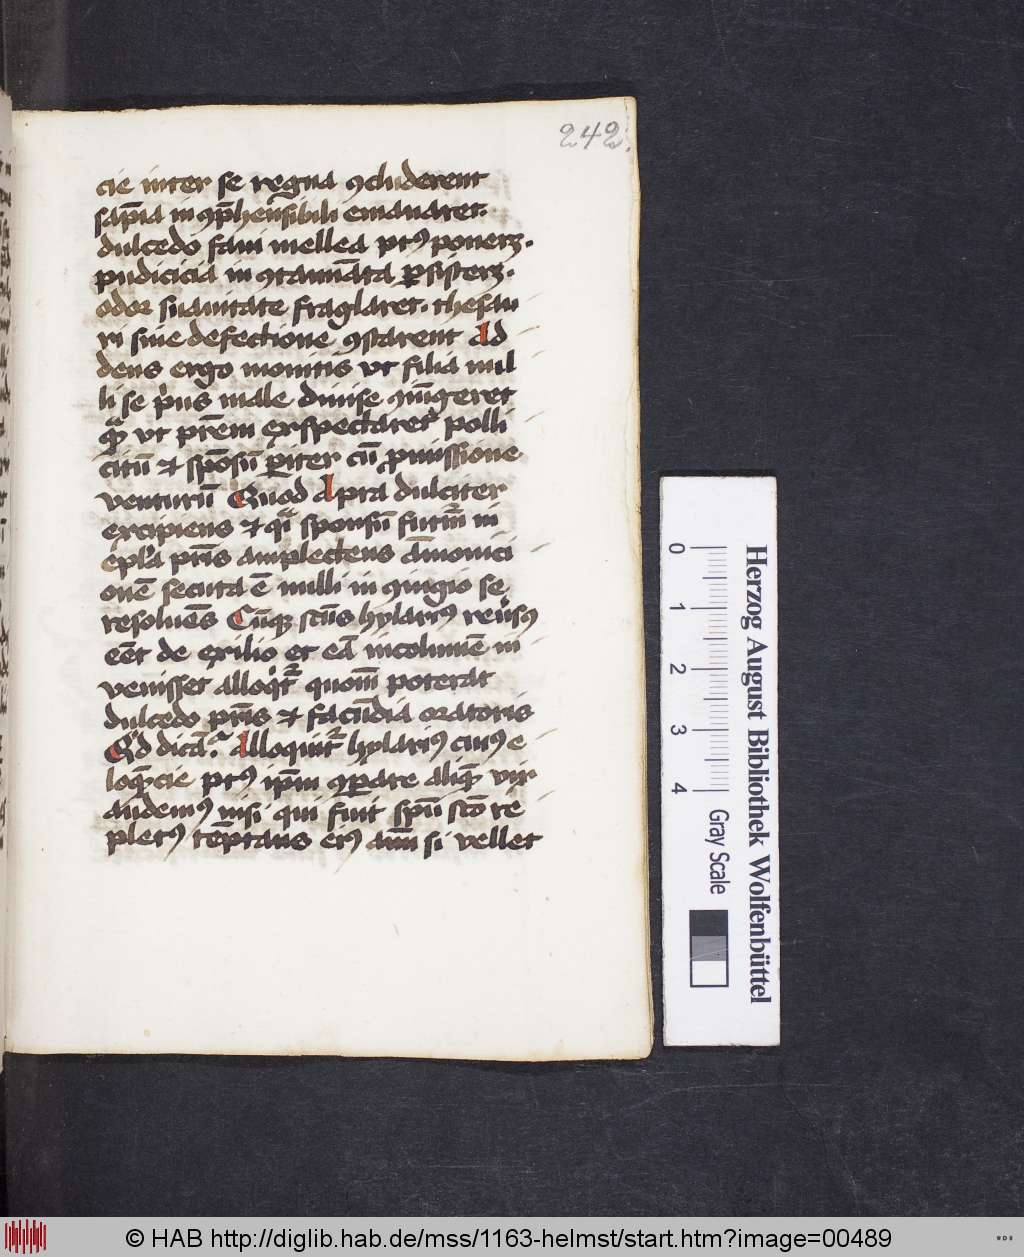 242.
cie inter se regna ꝯcluderent
sap̄ia in ꝯp̄hensibili emanaret.
dulcedo faui mellea ptꝰ ponerꝫ.
pudicicia in ꝯtamīata ꝑsisterꝫ.
odor suauitate fraglaret. thesau
ri sine defectione ꝯstarent Ad
dens ergo monitis vt filia nul
li se pͥus male diuise ꝯiūgeret
qͣꝫ vt pr̄em exspectaretͬ polli
citū et spōsū ꝑiter cū ꝓmissione
venturū Quod Apra dulciter
excipiens et qͣi sponsū futuꝝ in
epl̄a pr̄is amplectens āmonici
onē secuta ē nulli in ꝯiugio se
resoluēs Cūqꝫ scūs hylariꝰ reūsꝰ
eēt de exilio et eā incolumē in
venisset alloqͥtͬ quom̄ poterat
dulcedo pr̄is et facūdia oratoris
Qd dicā. Alloquitͬ hylariꝰ cuiꝰ e
loqͣꝫcie ptꝰ ip̄m ꝯꝑare aliqͣꝫ vix
audemꝰ nisi qui fuit sp̄ū scō re
pletꝰ tēptans eiꝰ aīm si vellet
Herzog August Bibliothek Wolfenbüttel
0 1 2 3 4
Gray Scale
© HAB http://diglib.hab.de/mss/1163-helmst/start.htm?image=00489